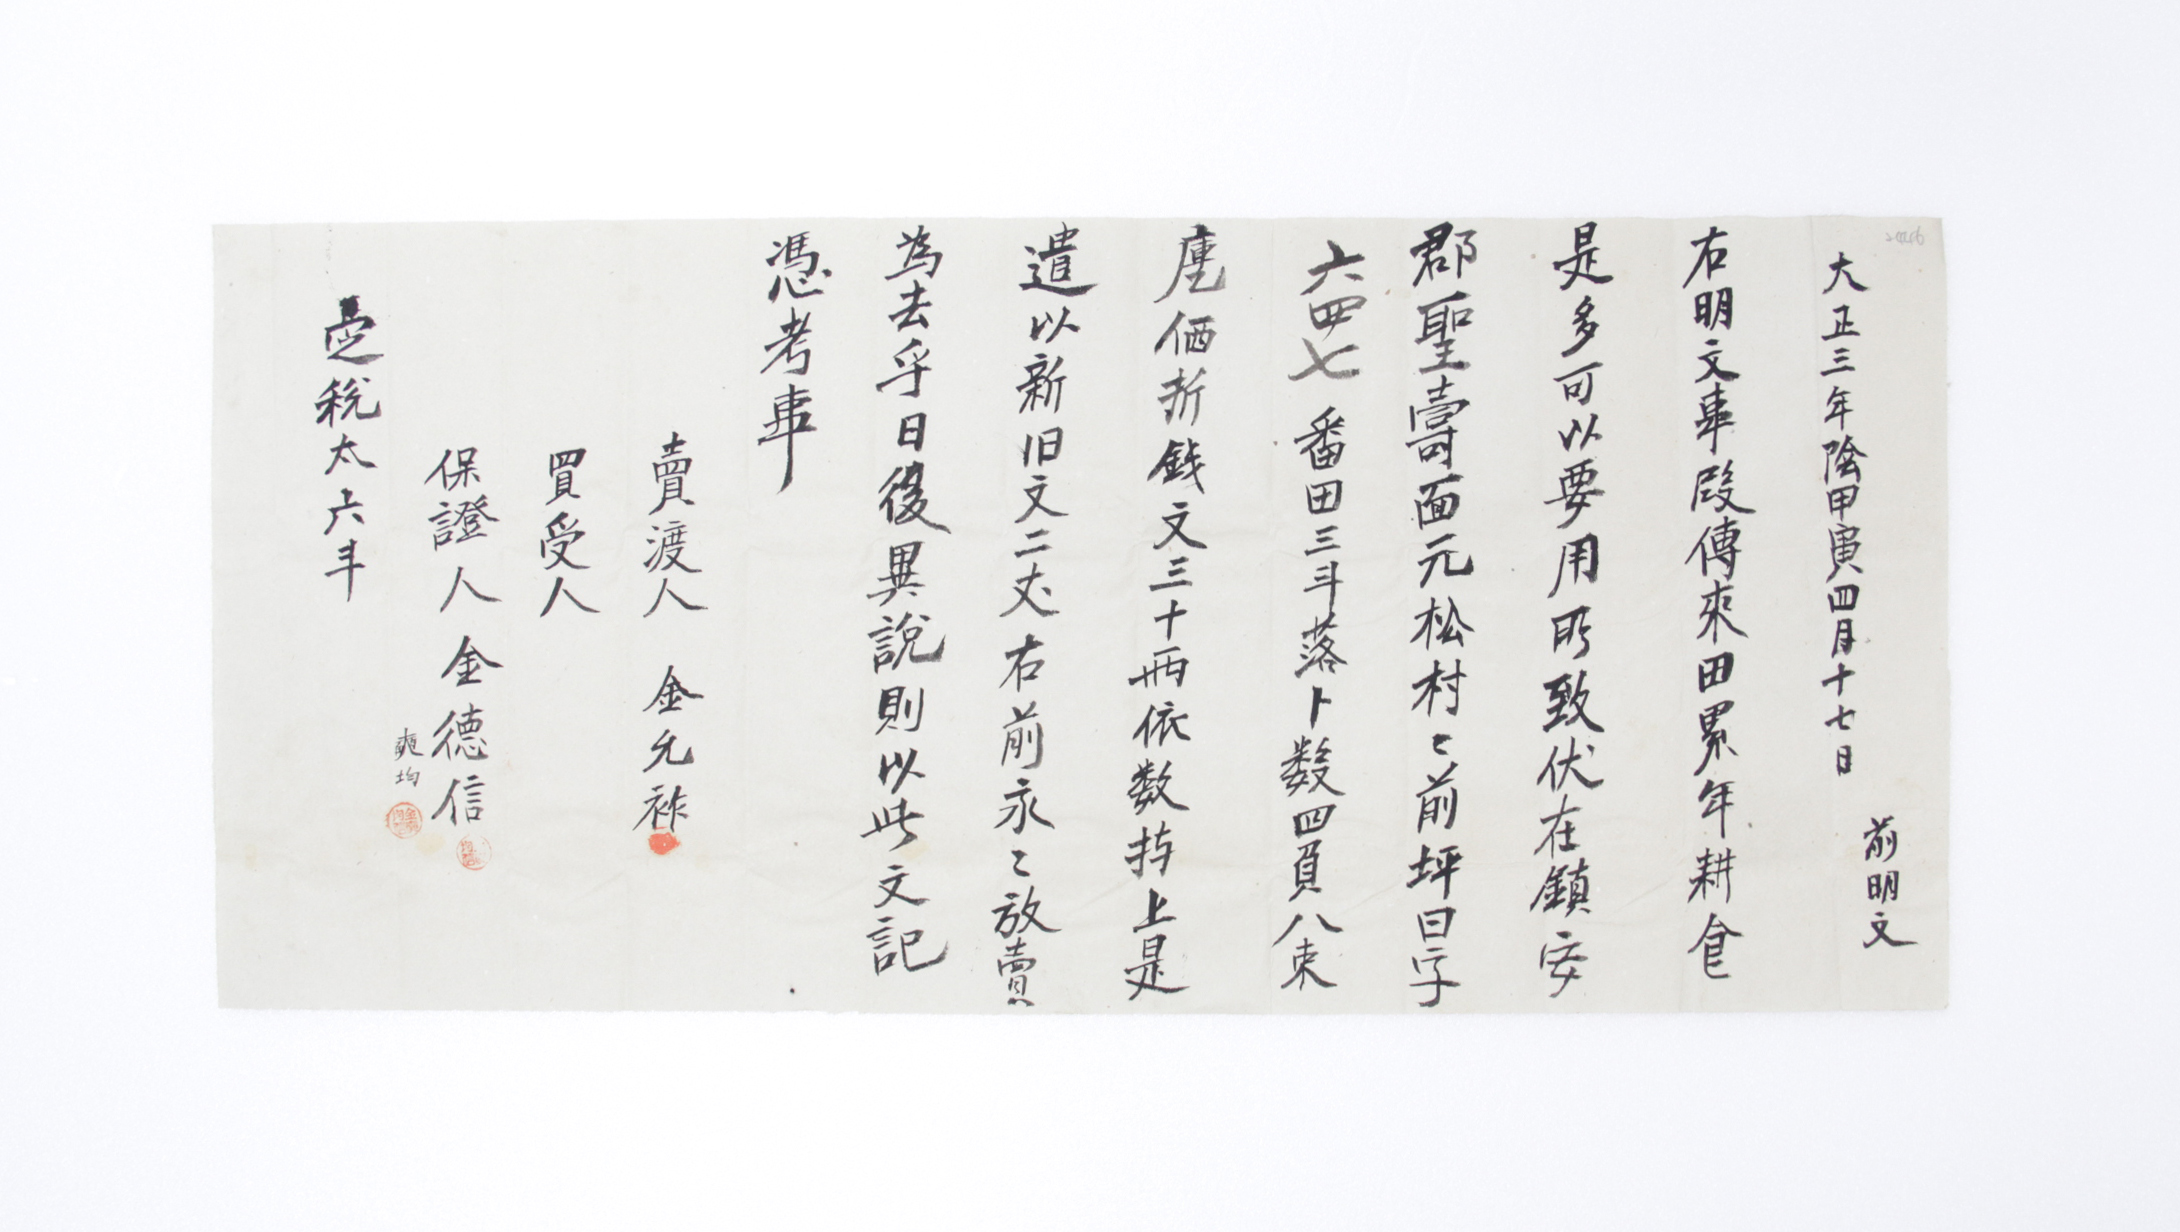 大正三年陰甲寅四月十七日
前明文
右明文事段傳來田累年耕食
是多可以要用所致伏在鎭安
郡聖壽面元松村〻前坪曰字
六四七番田三斗落卜数四負八束
庫価折錢文三十兩依数持上是
遣以新旧文二丈右前永〻放賣
為去乎日後異說則以此文記
憑考事
賣渡人 金允祚
買受人
保證人 金德信
奭均
税太六斗